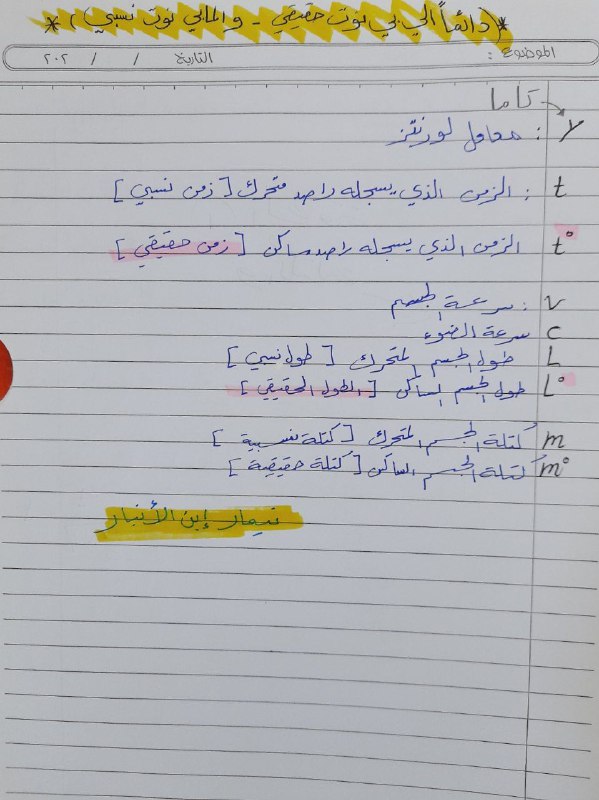 * (دائماً الي بي نوت حقيقي - و المابي نوت نسبي) *
الموضوع : التاريخ / / ٢٠٢
كاما
γ : معامل لورنتز
t : الزمن الذي يسجله راصد متحرك [زمن نسبي]
t° الزمن الذي يسجله راصد ساكن [زمن حقيقي]
v : سرعة الجسم
c سرعة الضوء
L طول الجسم المتحرك [طول نسبي]
L° طول الجسم الساكن [الطول الحقيقي]
m كتلة الجسم المتحرك [كتلة نسبية]
m° كتلة الجسم الساكن [كتلة حقيقية]
تيمار إبن الأنبار